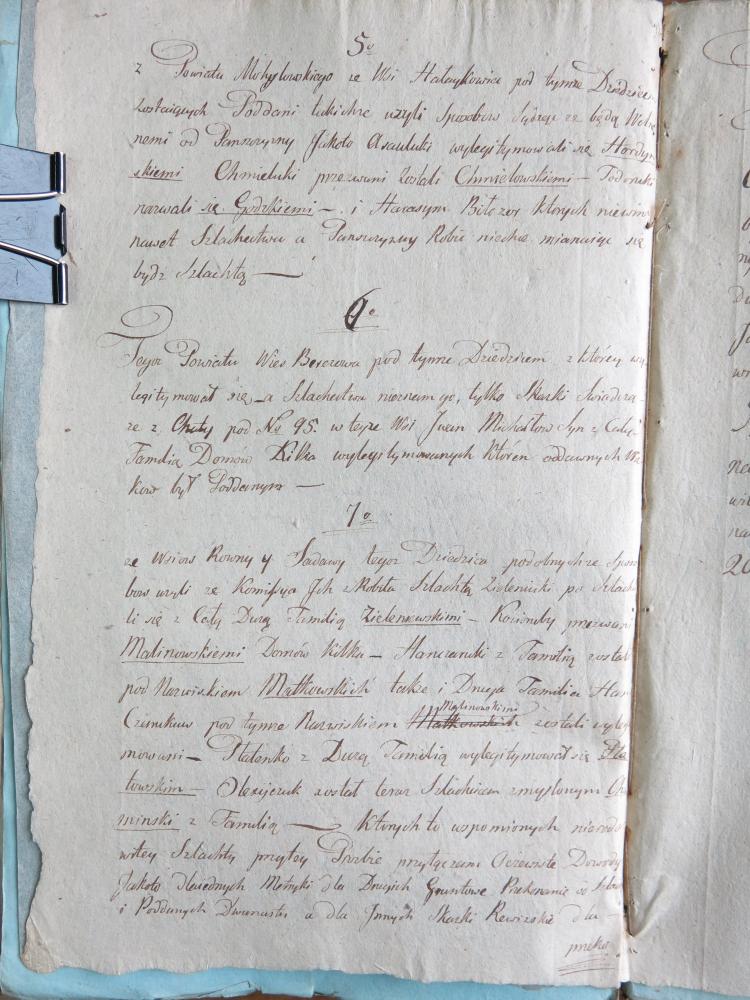 5º
z Powiatu Mohylowskiego ze Wsi Hałaykowiec pod tymże Dziedzicem
zostaiących Poddani takichże użyli sposobow sądząc że będą Wolnemi
nemi od Panszczyzny Jakoto Asauluki wylegitymowali się Hordyń
skiemi Chmieluki przezwani zostali Chmielowskiemi — Todoruki
nazwali się Godzkiemi — i Harasym Biłczer Których niewinn
nawet Szlachectwa a Panszczyzny Robić niechce mianuiąc się
bydź Szlachtą —
6º
Tegoż Powiatu Wieś Berezowa pod tymże Dziedzicem z którey wy
legitymował się a Szlachectwa nieznamy go, tylko Skazki Swiadczą
że z Chaty pod No 95. w teyże Wsi Jwan Michałow Syn z Całą
Familią Domow Kilka wylegitymowanych Któren oddawnych Wie
kow był Poddanym —
7º
ze Wsiow Rowny y Sadawy tegoż Dziedzica podobnychże Sposo
bow użyli że Komissya Jch zRobiła Szlachtą Zieleniuki po Szlach
li się z Całą Dużą Familią Zielenewskimi — Kosionby przezwani
Malinowskiemi Domow Kilka — Hanczaruki z Familią zostali
pod Nazwiskiem Matkowskich także i Druga Familia Han
Czerukuw pod tymże Nazwiskiem Matkowskich Malinowskimi zostali wyleg
mowani — Płatenko z Dużą Familią wylegitymował się Pła
towskim — Olexijczuk został teraz Szlachcicem zmyślonym
minski z Familią — Ktorych to wspomionych nierodo
witey Szlachty przytey Prozbie przyłączam Oczewiste Dowody
Jakoto Jednych Metryki dla Drugich Gruntowe Przekonanie ze Szlach
i Poddanych Dwunastu a dla Jnnych Skazki Rewizskie dla